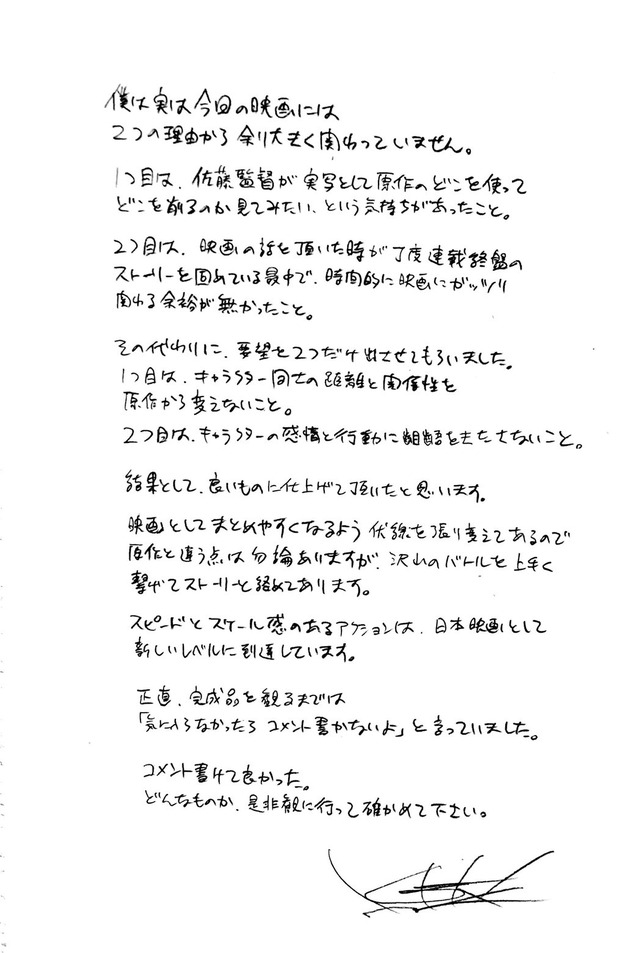 僕は実は今回の映画には
2つの理由から余り大きく関わっていません。
1つ目は、佐藤監督が実写として原作のどこを使って
どこを削るのか見てみたい、という気持ちがあったこと。
2つ目は、映画の話を頂いた時が丁度連載終盤の
ストーリーを固めている最中で、時間的に映画にガッツリ
関わる余裕が無かったこと。
その代わりに、要望を2つだけ出させてもらいました。
1つ目は、キャラクター同士の距離と関係性を
原作から変えないこと。
2つ目は、キャラクターの感情と行動に齟齬をきたさないこと。
結果として、良いものに仕上げて頂いたと思います。
映画としてまとめやすくなるよう伏線を張り変えてあるので
原作と違う点は勿論ありますが、沢山のバトルを上手く
繋げてストーリーと絡めてあります。
スピードとスケール感のあるアクションは、日本映画として
新しいレベルに到達しています。
正直、完成品を観るまでは
「気に入らなかったらコメント書かないよ」と言っていました。
コメント書けて良かった。
どんなものか、是非観に行って確かめて下さい。